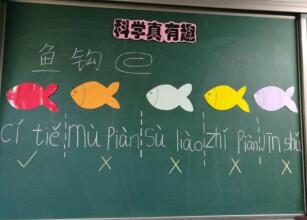 科学真有趣
鱼钩
cí tiě mù piàn sù liào zhǐ piàn jīn shǔ
✓ × × × ×